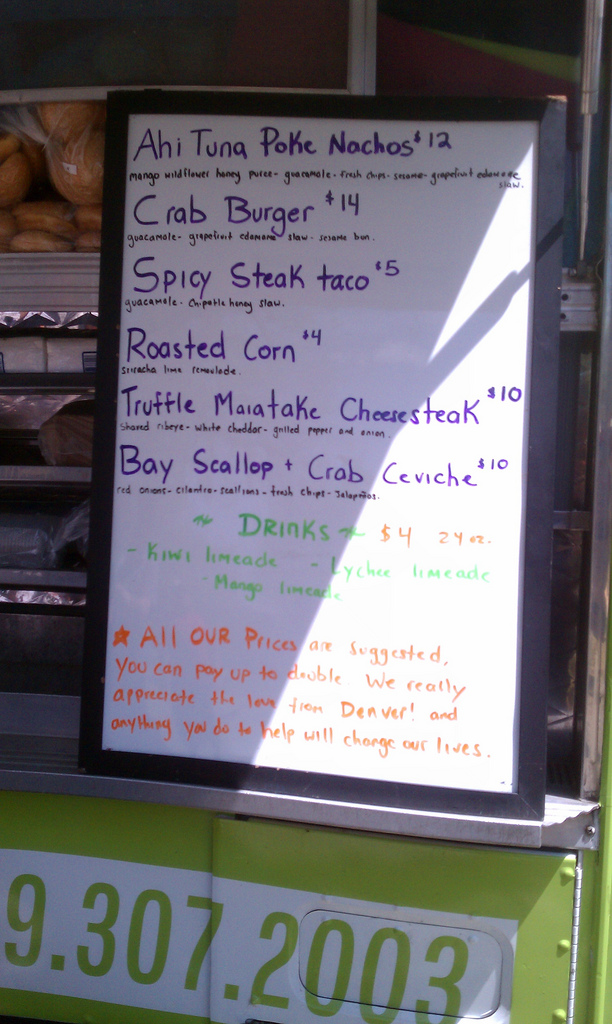 Ahi Tuna Poke Nachos $12
mango wildflower honey puree - guacamole - fresh chips - sesame - grapefruit edamame
slaw.
Crab Burger $14
guacamole - grapefruit edamame slaw - sesame bun.
Spicy Steak taco $5
guacamole - chipotle honey slaw.
Roasted Corn $4
sriracha lime remoulade.
Truffle Maiatake Cheesesteak $10
shaved ribeye - white cheddar - grilled pepper and onion.
Bay Scallop + Crab Ceviche $10
red onions - cilantro - scallions - fresh chips - jalapeños.
~ DRINKS ~ $4 24 oz.
- Kiwi limeade - Lychee limeade
- Mango limeade
★ All OUR Prices are suggested,
you can pay up to double. We really
appreciate the love from Denver! and
anything you do to help will change our lives.
9.307.2003